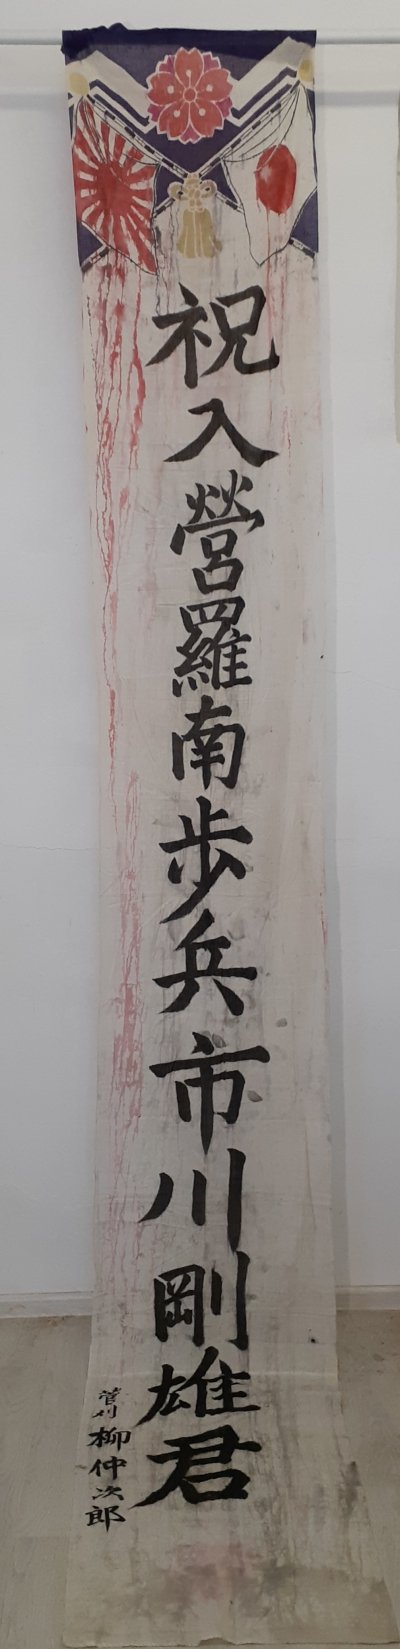 祝入營羅南歩兵市川剛雄君
菅刈柳仲次郎